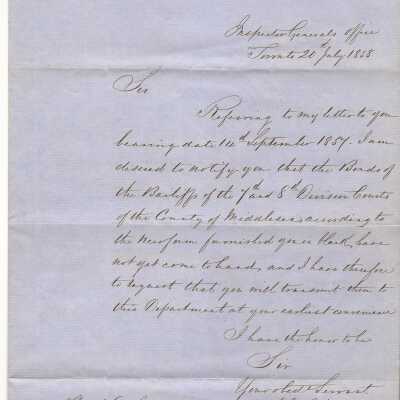 Inspector Generals Office
Toronto 20th July 1858
Sir
Referring to my letter to you
bearing date 14th September 1857. I am
desired to notify you that the Bonds of
the Bailiffs of the 7th and 8th Division Courts
of the County of Middlesex, according to
the New form furnished you in blank, have
not yet come to hand, and I have therefore
to request that you will transmit them to
this Department at your earliest convenience
I have the honor to be
Sir
Your obedt Servant